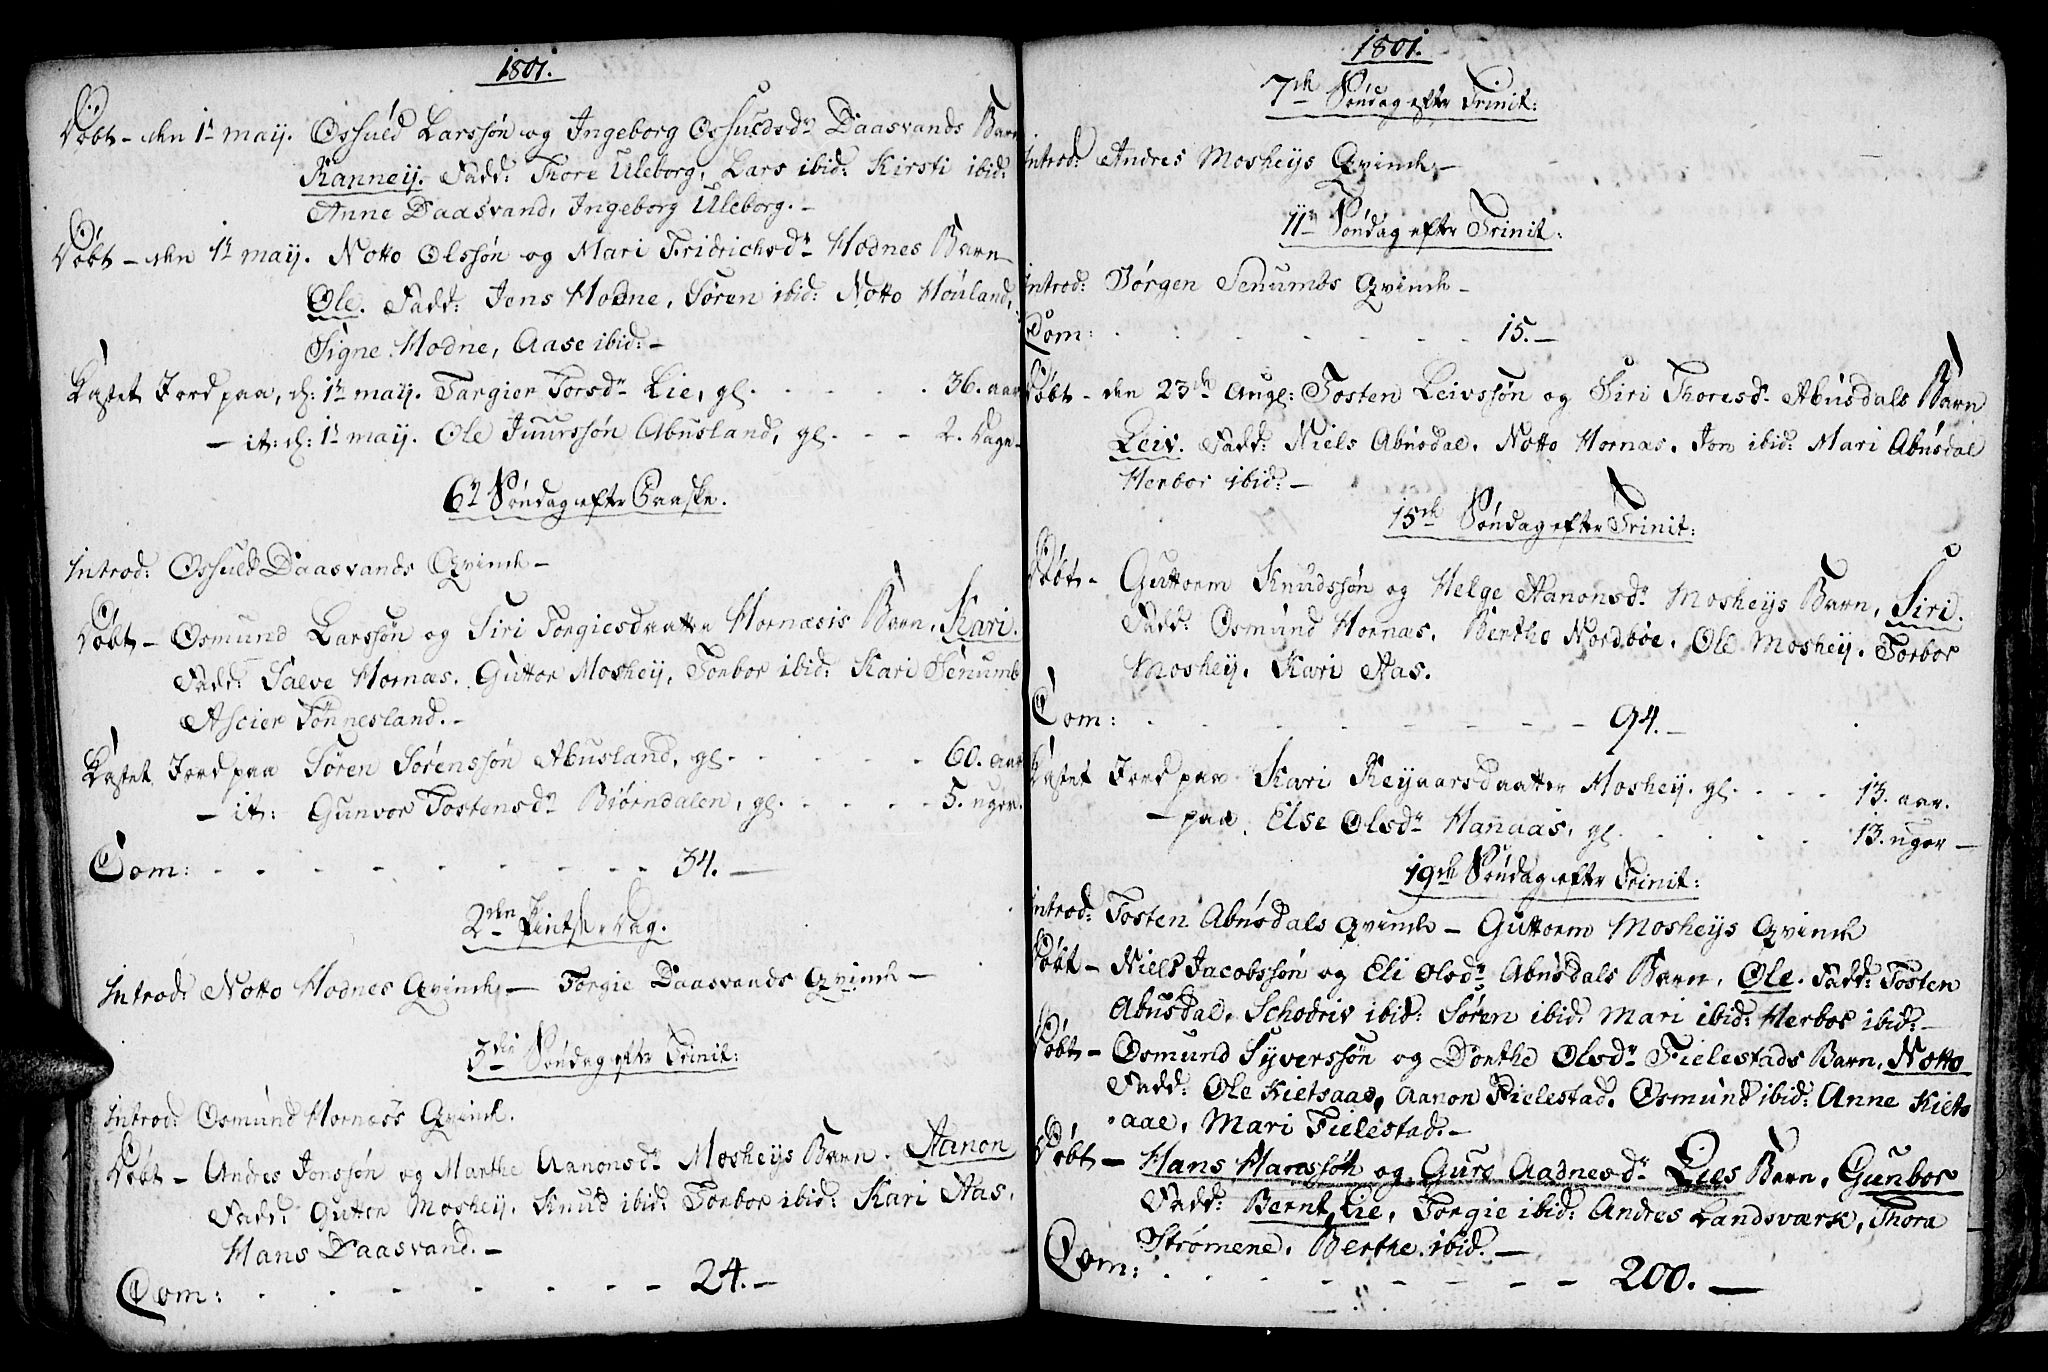 1801.
Døbt - den 1te maij. Ossuld Larssøn og Ingeborg Ossuldsdr Daasvands Barn
Ranneij. Fadd: Thore Uleborg, Lars ibid: Kirsti ibid:
Anne Daasvand, Ingeborg Uleborg. -
Døbt - den 1te maij. Notto Olssøn og Mari Fridrichsdr Hodnes Barn
Ole. Fadd: Jens Hodne, Søren ibid: Notto Houland,
Signe Hodne, Aase ibid: -
Kastet Jord paa, d: 1te maij. Targier Torsdr Lie, gl. - - - - - 36. aar
- it: d: 1te maij. Ole Juurssøn Abusland, gl. - - - 2. Dage -
6te Søndag efter Paaske.
Introd: Ossuld Daasvands Qvinde -
Døbt - Osmund Larssøn og Siri Torgiesdaatter Hornæsis Barn, Kari.
Fadd: Saeve Hornæs, Guttor Moshey, Torbor ibid: Kari Senumb
Ascier Tønnesland. -
Kastet Jord paa Søren Sørenssøn Abusland, gl. - - - - - 60. aar
- it: Gunvor Tostensdr Biørndalen, gl. - - - - 5. uger.
Com: - - - - - - - - 34. -
2den Pintse-Dag.
Introd: Notto Hodnes Qvinde, - Torgie Daasvands Qvinde -
3die Søndag efter Trinit:
Introd: Osmund Hornæs's Qvinde.
Døbt - Andres Jonssøn og Marthe Aanonsdr Mosheys Barn. Aanon
Fadd: Guttor Moshey, Knud ibid: Torbor ibid: Kari Aas,
Hans Daasvand. -
Com: - - - - - - - 24. -
1801.
7de Søndag efter Trinit:
Introd: Andres Mosheys Qvinde -
11te Søndag efter Trinit:
Introd: Jørgen Senumbs Qvinde -
Com: - - - - - - - 15. -
Døbt - den 23de Augl: Tosten Leivssøn og Siri Thoresdr Abusdals Barn
Leiv. Fadd: Niels Abusdal, Notto Hornæs, Jon ibid: Mari Abusdal
Herbor ibid: -
15de Søndag efter Trinit:
Døbt - Guttorm Knudssøn og Helge Aanonsdr Mosheys Barn, Siri.
Fadd: Osmund Hornæs, Berthe Nordbøe, Ole Moshey, Torbor
Moshey, Kari Aas.
Com: - - - - - - - - 94. -
Kastet Jord paa Kari Reynarsdaatter Moshey, gl. - - - - 13. aar.
- paa Else Olsdr Hanaas, gl. - - - - 13. uger -
19de Søndag efter Trinit:
Introd: Tosten Abusdals Qvinde - Guttorm Mosheys Qvinde
Døbt - Niels Jacobssøn og Eli Olsdr Abusdals Barn, Ole. Fadd: Tosten
Abusdal, Schodriv ibid: Søren ibid: Mari ibid: Herbor ibid: -
Døbt - Osmund Syverssøn og Dorthe Olsdr Fielestads Barn, Notto
Fadd: Ole Kietsaas, Aanon Fielestad, Osmund ibid: Anne Kiets
aae, Mari Fielestad. -
Døbt - Hans Hanssøn og Guro Aadnesdr Lies Barn, Gunbor
Fadd: Bernt Lie, Torgie ibid: Andres Landsværk, Thora
Strømene, Berthe ibid. -
Com: - - - - - - - - 200. -